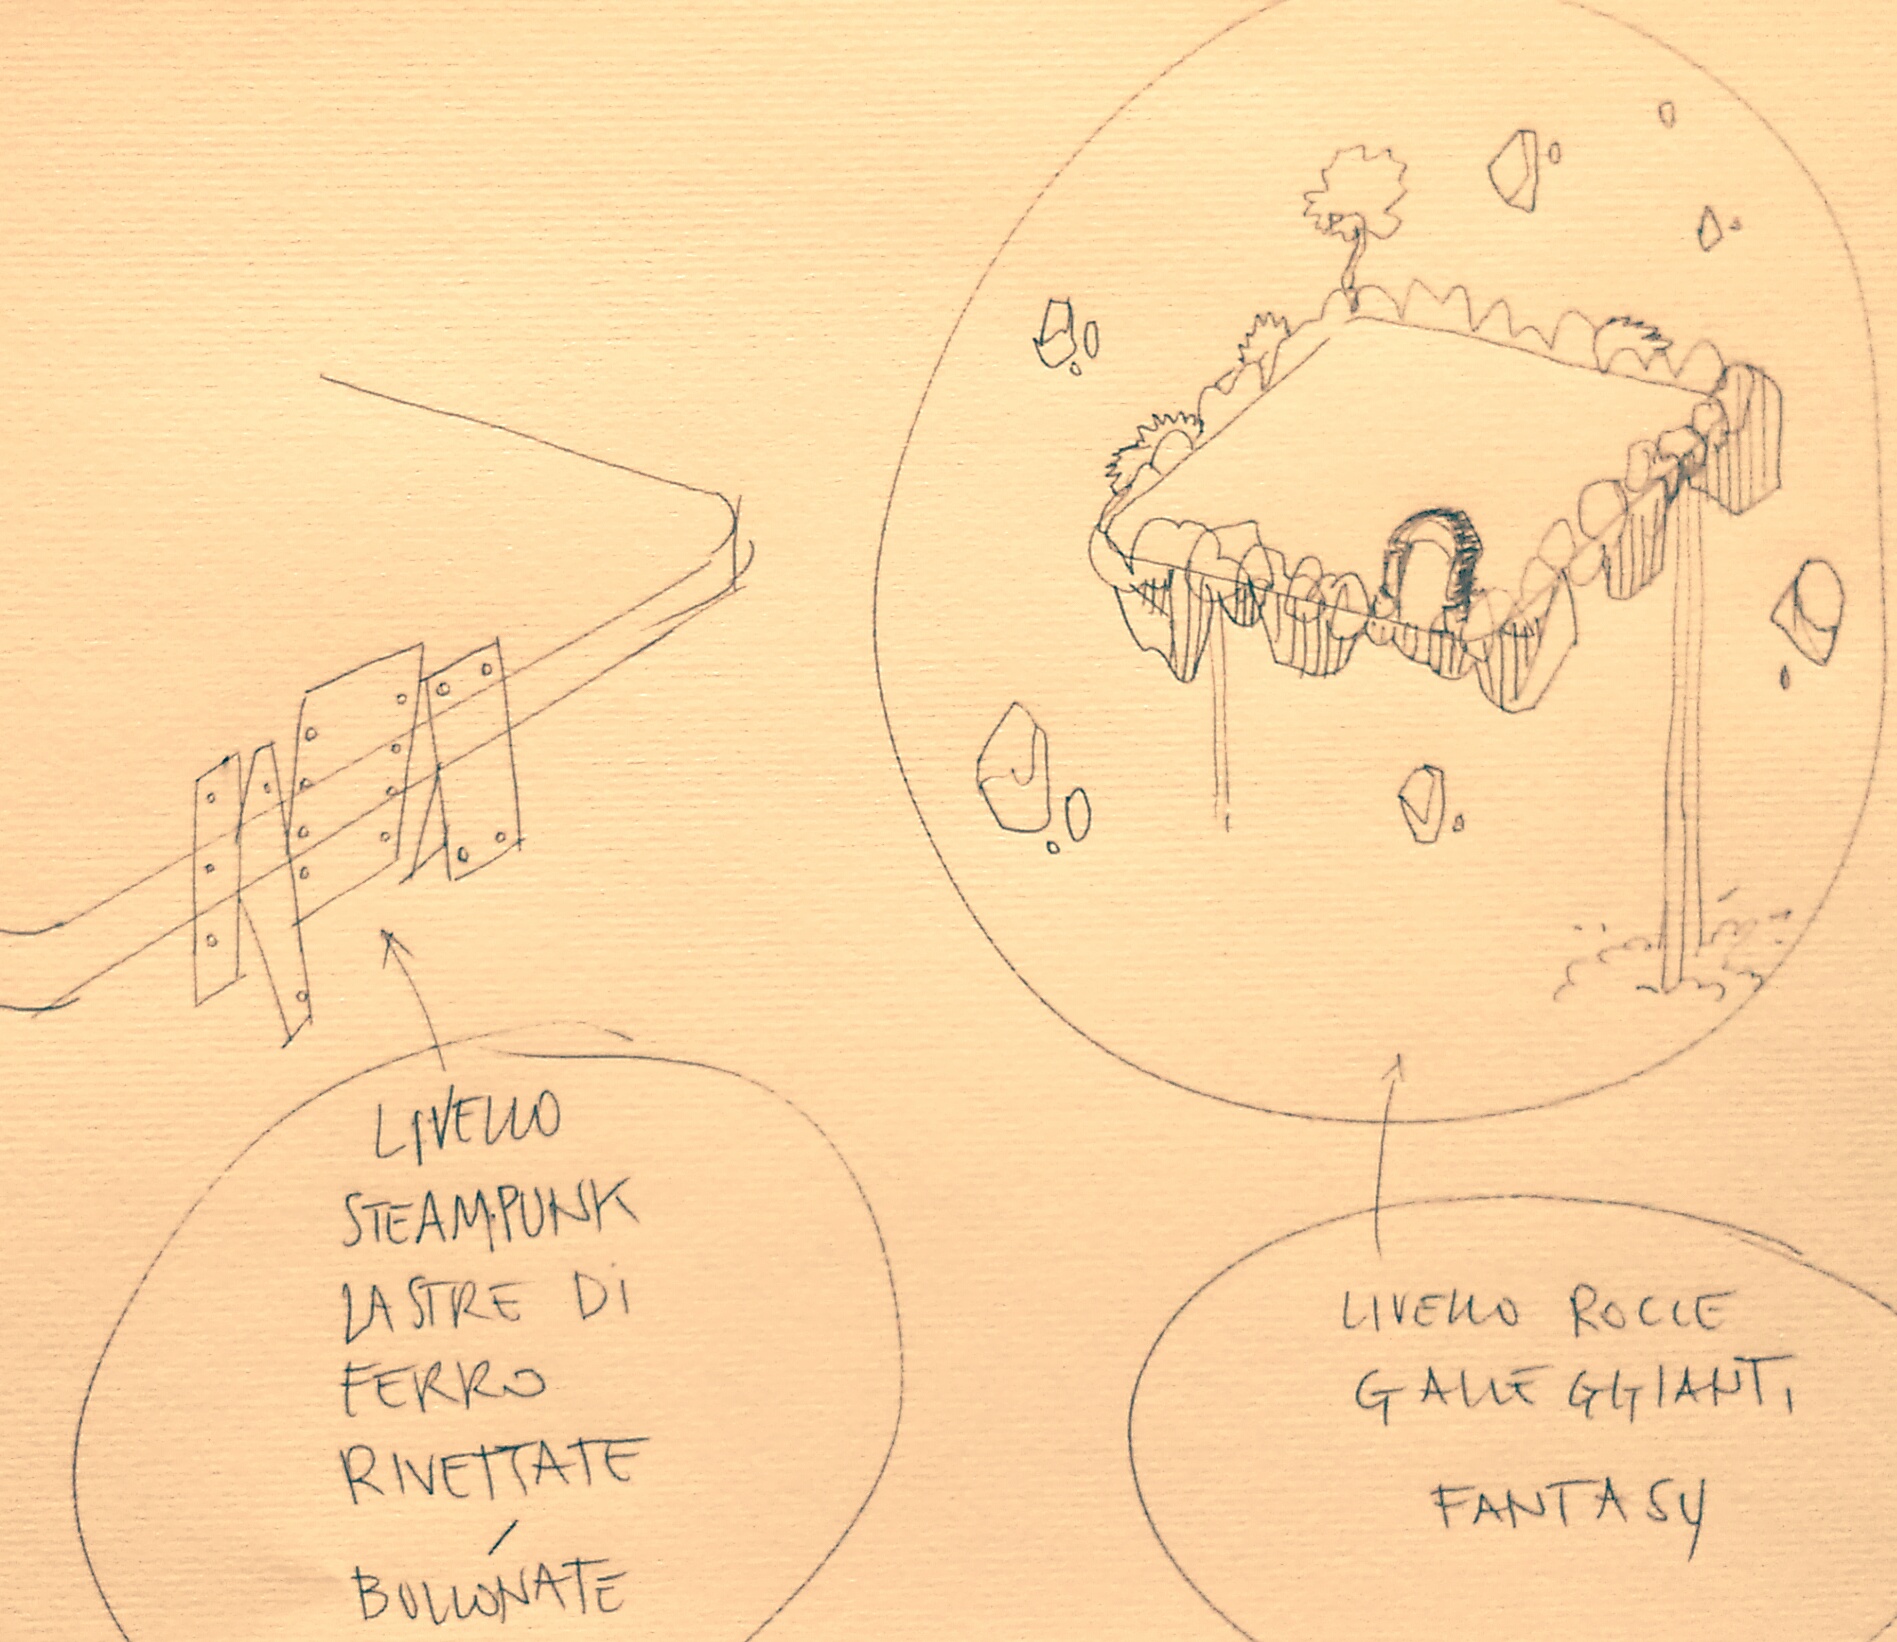 LIVELLO
STEAMPUNK
LASTRE DI
FERRO
RIVETTATE
/
BULLONATE
LIVELLO ROCCE
GALLEGGIANTI
FANTASY